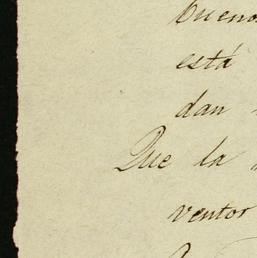 bueno
está
dan
Que la
ventor